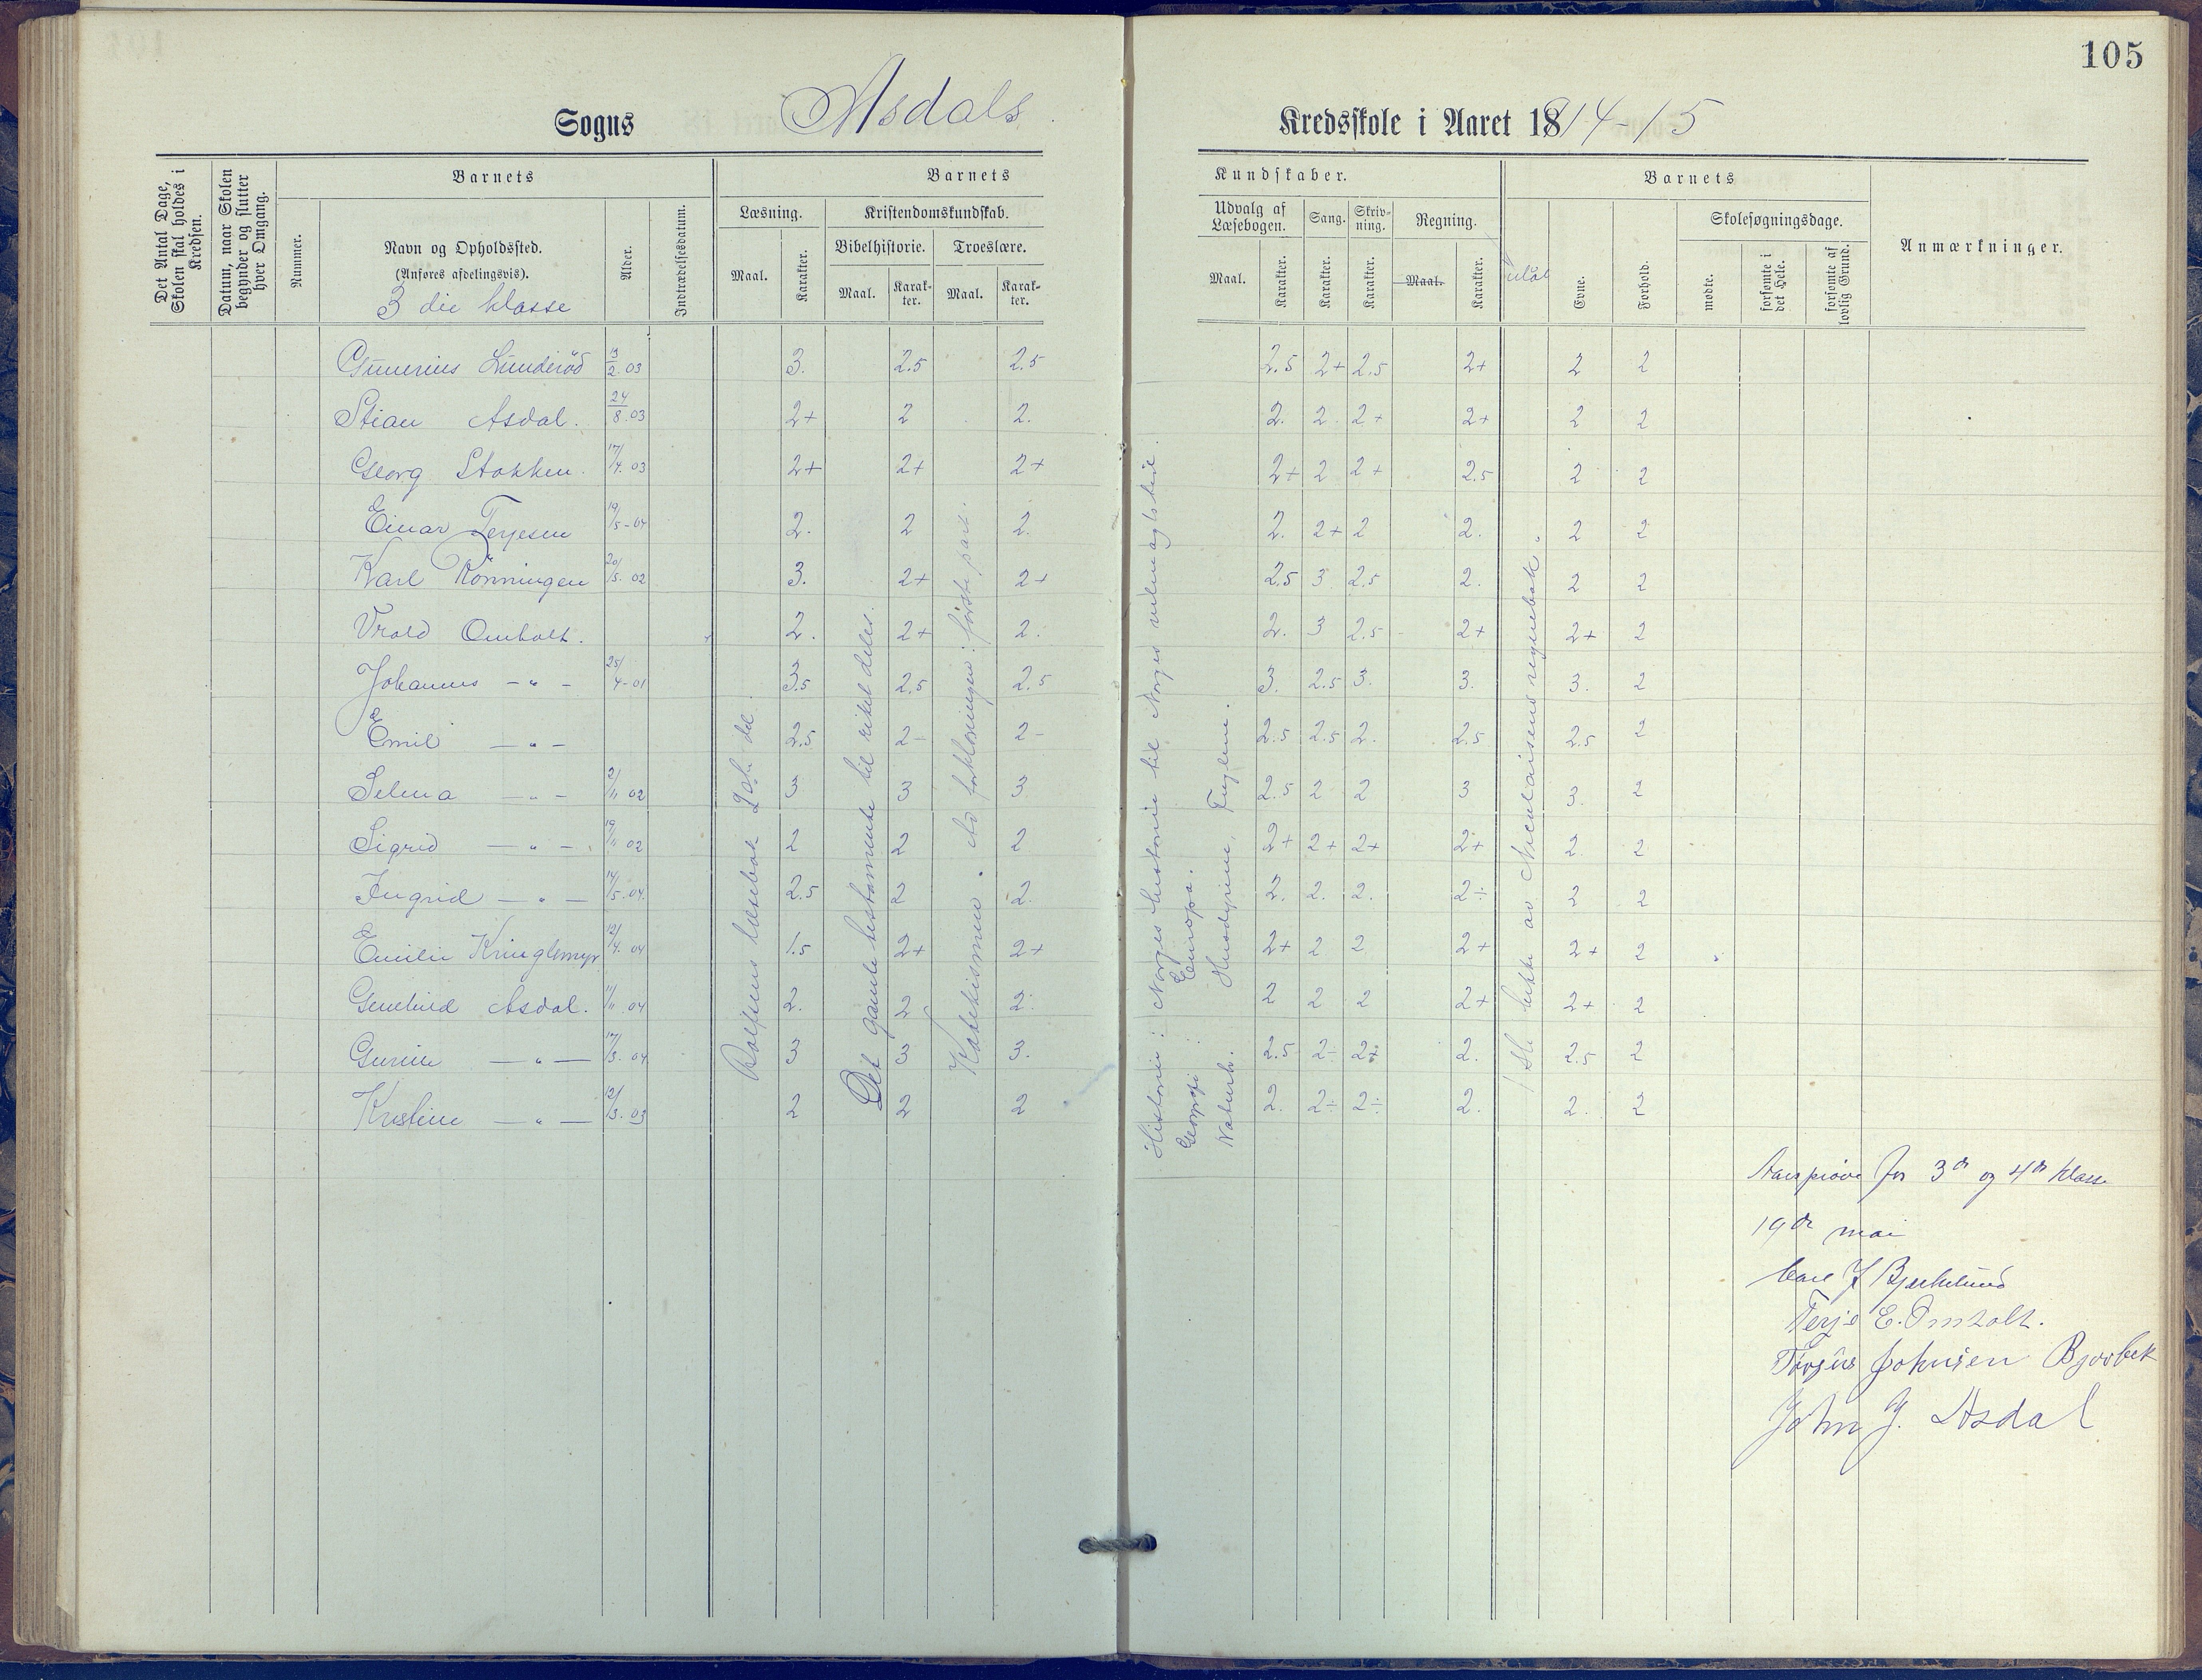 105
Sogns Asdals Kredsskole i Aaret 1814-15
Det Antal Dage, Skolen skal holdes i Kredsen.
Datum, naar Skolen begynder og slutter hver Omgang.
Barnets
Nummer.
Navn og Opholdssted.
(Anføres afdelingsvis).
3 die klasse
Alder.
Indtrædelsesdatum.
Barnets Kundskaber.
Læsning.
Maal.
Karakter.
Kristendomskundskab.
Bibelhistorie.
Maal.
Karakter.
Troeslære.
Maal.
Karakter.
Udvalg af Læsebogen.
Maal.
Karakter.
Sang.
Karakter.
Skrivning.
Karakter.
Regning.
Maal.
Karakter.
Barnets
Evne.
Forhold.
Skolesøgningsdage.
mødte.
forsømte i det Hele.
forsømte af lovlig Grund.
Anmærkninger.
Gunerius Lunderød 13/2 03 3. 2.5 2.5 2.5 2+ 2.5 2+ 2 2
Stian Asdal. 24/8 03 2+ 2 2. 2. 2 2+ 2+ 2 2
Georg Stokken. 17/4. 03 2+ 2+ 2+ 2+ 2 2+ 2.5 2 2
Einar Terjesen 19/5-04 2. 2 2. 2. 2+ 2 2. 2 2
Karl Rønningen 20/5. 02 3. 2+ 2+ 2.5 3 2.5 2. 2 2
Vrold Omholt. 2. 2+ 2. 2. 3 2.5 2+ 2+ 2
Johannes - " - 25/4-01 3.5 2.5 2.5 3. 2.5 3. 3. 3. 2
Emil - " - 2.5 2- 2- 2.5 2.5 2. 2.5 2.5 2
Selma - " - 2/11 02 3 3 3 2.5 2 2 3 3. 2
Sigrid - " - 19/11 02 2 2 2 2+ 2+ 2+ 2+ 2 2
Ingrid - " - 14/5-04. 2.5 2 2. 2. 2. 2. 2÷ 2 2
Emilie Kringlemyr 12/4. 04 1.5 2+ 2+ 2+ 2 2 2+ 2+ 2
Gunhild Asdal. 11/11 04 2. 2 2. 2 2 2 2+ 2+ 2
Gurine - " - 17/3. 04 3 3 3. 2.5 2÷ 2÷ 2. 2.5 2
Kristine - " - 12/3. 03 2 2 2 2. 2÷ 2÷ 2. 2. 2
Rolfsens læsebok 2den del
Det gamle testamente til riket deles.
Katekismen. Av forklaringen: første part.
Historie: Norges historie til Norges
Geografi: Europa.
Naturh. Husdyrene, Fuglene.
hefte av Nicolaisens regnebok.
Aarsprøve for 3die og 4de klasse
19de mai
Carl J Bjerkelund
Terje E. Omholt.
Torjus Johnsen Bjorbek
John J. Asdal